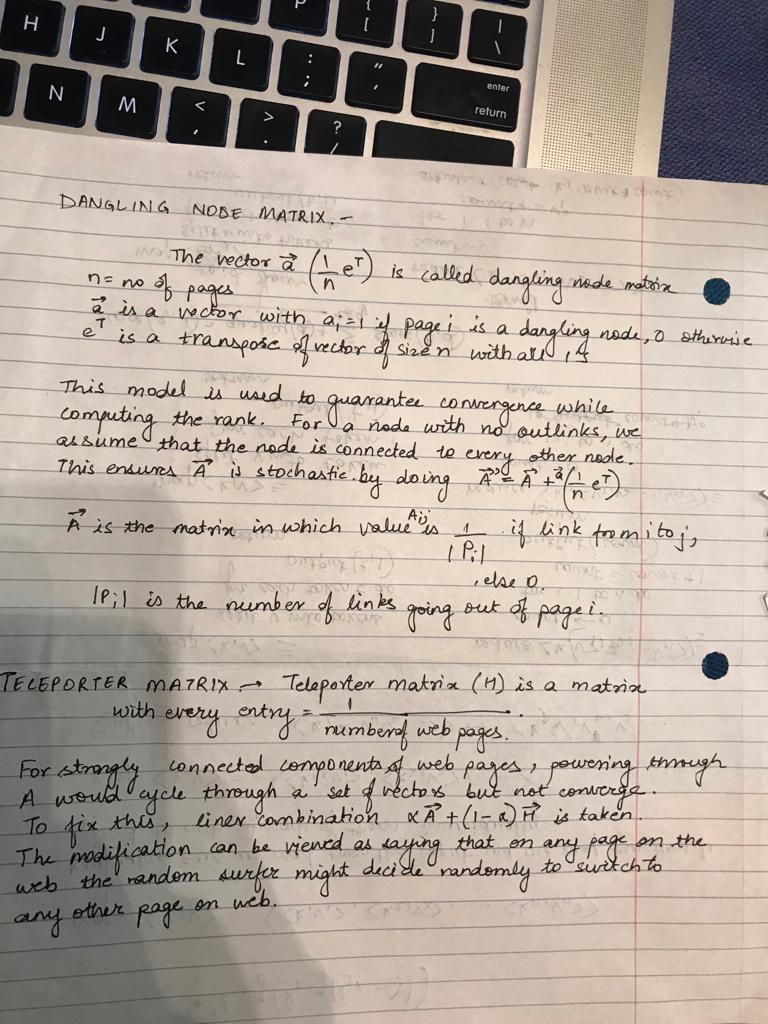 P
{
[
}
]
|
\
H
J
K
L
:
;
"
'
enter
return
N
M
<
,
>
.
?
/
DANGLING NODE MATRIX. –
The vector a⃗ (1/n eᵀ) is called dangling node matrix
n = no of pages
a⃗ is a vector with aᵢ=1 if page i is a dangling node, 0 otherwise
eᵀ is a transpose of vector of size n with all 1s
This model is used to guarantee convergence while
computing the rank. For a node with no outlinks, we
assume that the node is connected to every other node.
This ensures A⃗ is stochastic by doing A⃗' = A⃗ + a⃗(1/n eᵀ)
A⃗ is the matrix in which value Aij is 1/|Pi| if link from i to j,
, else 0
|Pi| is the number of links going out of page i.
TELEPORTER MATRIX → Teleporter matrix (H) is a matrix
with every entry = 1/number of web pages.
For strongly connected components of web pages, powering through
A would cycle through a set of vectors but not converge.
To fix this, liner combination αA⃗ + (1-α) H⃗ is taken.
The modification can be viewed as saying that on any page on the
web the random surfer might decide randomly to switch to
any other page on web.